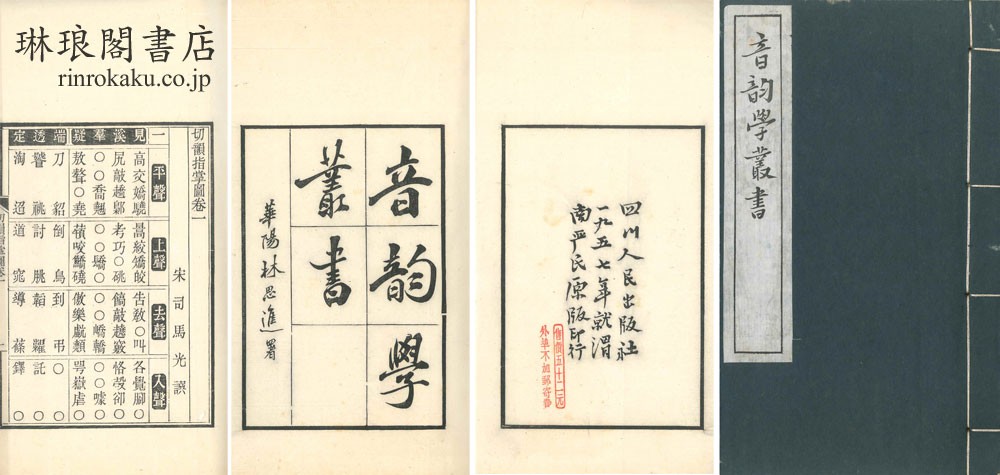 琳琅閣書店
rinrokaku.co.jp
切韻指掌圖卷一
宋司馬光譔
一 平聲 上聲 去聲 入聲
見 高交嬌驍 暠絞矯皎 告敎○叫 各覺腳○
溪 尻敲趫鄡 考巧○ 敲趬竅 恪 却○
羣 ○○喬翹 ○○ ○ ○○嶠轎 ○○噱○
疑 敖聱○堯 咬 磽 傲樂 顤 咢嶽虐○
端 刀 貂 倒 鳥 到 弔 ○ ○
透 祧 討 朓 糶 託 ○
定 淘 迢 道 窕 導 鐸 ○
音韵學
叢書
華陽林思進署
四川人民出版社
一九五七年就渭
南严氏原版印行
售價五十二元
外埠不加郵寄費
音韵學叢書